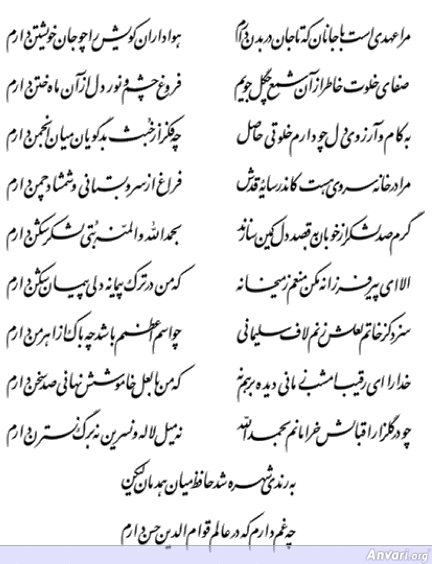 مرا عهدی است با جانان که تا جان در بدن دارم هواداران کویش را چو جان خویشتن دارم
صفای خلوت خاطر از آن شمع چگل جویم فروغ چشم و نور دل از آن ماه ختن دارم
به کام و آرزوی دل چو دارم خلوتی حاصل چه فکر از خبث بدگویان میان انجمن دارم
مرا در خانه سروی هست کاندر سایهٔ قدش فراغ از سرو بستانی و شمشاد چمن دارم
گرم صد لشکر از خوبان به قصد دل کمین سازند بحمد الله و المنه بتی لشکر شکن دارم
الا ای پیر فرزانه مکن منعم ز میخانه که من در ترک پیمانه دلی پیمان شکن دارم
سزد کز خاتم لعلش زنم لاف سلیمانی چو اسم اعظمم باشد چه باک از اهرمن دارم
خدا را ای رقیب امشب زمانی دیده بر هم نه که من با لعل خاموشش نهانی صد سخن دارم
چو در گلزار اقبالش خرامانم بحمد الله نه میل لاله و نسرین نه برگ نسترن دارم
به رندی شهره شد حافظ میان همدمان لیکن
چه غم دارم که در عالم قوام الدین حسن دارم
Anvari.org